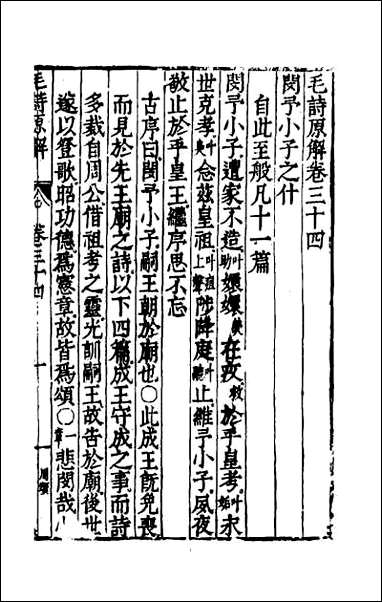 毛詩原解卷三十四
閔予小子之什
自此至般凡十一篇
閔予小子遭家不造叶助嬛嬛在疚救於乎皇考叶永
世克孝叶念茲皇祖叶祖上聲陟降庭叶止維予小子夙夜
敬止於乎皇王繼序思不忘
古序曰閔予小子嗣王朝於廟也○此成王既免喪
而見於先王廟之詩以下四篇成王守成之事而詩
多裁自周公借祖考之靈光訓嗣王故告於廟後世
遂以登歌昭功德爲憲章故皆爲頌○一章悲閔哉
毛詩原解 卷三十四 一